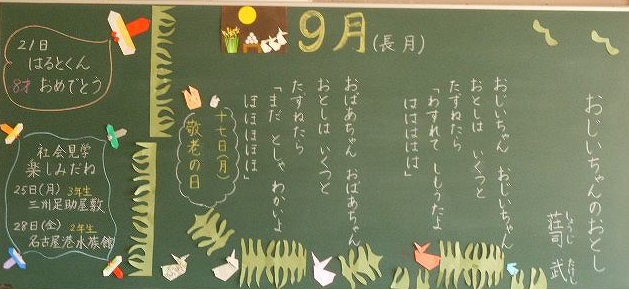 9月(長月)
おじいちゃんのおとし
荘司 武
しょうじ たけし
おじいちゃん おじいちゃん
おとしは いくつと
たずねたら
「わすれて しもうたよ
はははははは」
おばあちゃん おばあちゃん
おとしは いくつと
たずねたら
「まだ としゃ わかいよ
ほほほほほほ」
十七日(月)
敬老の日
21日
はるとくん
8才 おめでとう
社会見学
楽しみだね
25日(月) 3年生
三州足助屋敷
28日(金) 2年生
名古屋港水族館